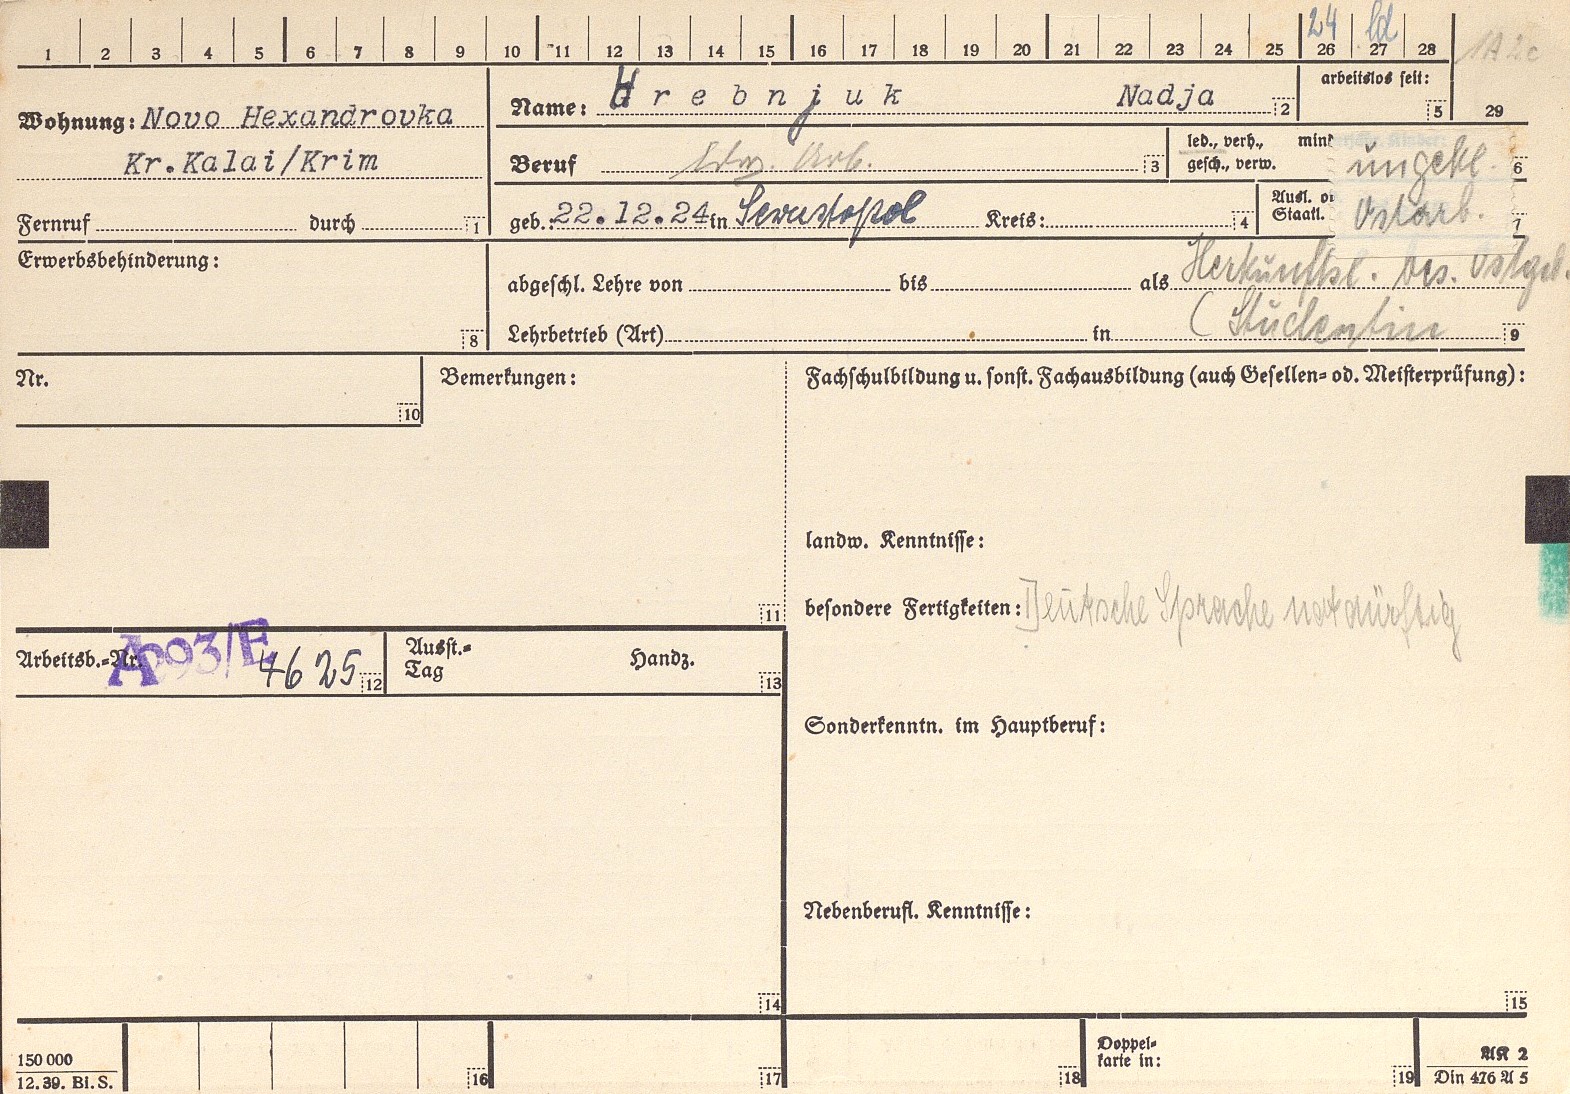 24 ld
1 2 3 4 5 6 7 8 9 10 11 12 13 14 15 16 17 18 19 20 21 22 23 24 25 26 27 28 29
1A 2c
arbeitslos seit: 5
Wohnung: Novo Hexandrovka
Kr.Kalai/Krim
Fernruf durch 1
Name: Hrebnjuk Nadja 2
Beruf Arb. 3
led., verh., mind
gesch., verw.
ungekl. 6
geb.: 22.12.24 in Sewastopol Kreis: 4
Ausl. od
Staatl.
Ostarb. 7
Erwerbsbehinderung: 8
abgeschl. Lehre von bis als Herkunftsl. bes. Ostgeb.
Lehrbetrieb (Art) in (Studentin 9
Nr. 10
Bemerkungen: 11
Fachschulbildung u. sonst. Fachausbildung (auch Gesellen= od. Meisterprüfung):
landw. Kenntnisse:
besondere Fertigkeiten: Deutsche Sprache notdürftig
Arbeitsb.=Nr. A093/E 4625 12
Ausst.=
Tag Handz. 13
Sonderkenntn. im Hauptberuf:
Nebenberufl. Kenntnisse:
14
15
150 000
12. 39. Bi. S.
16
17
18
Doppel=
karte in: 19
AK 2
Din 476 A 5